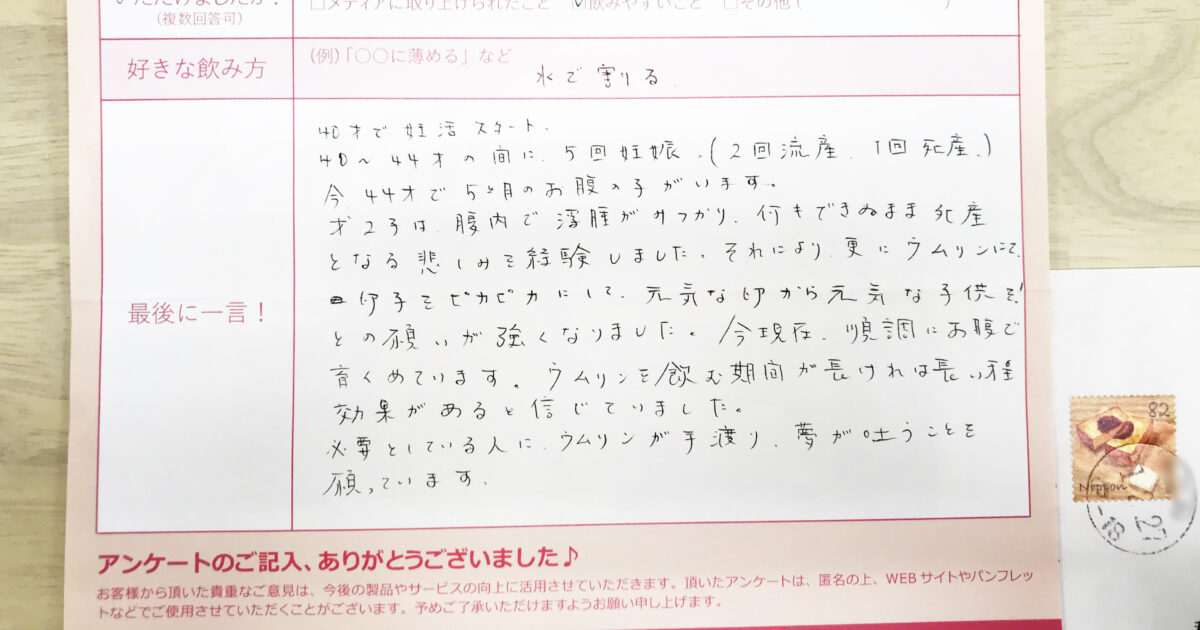 いただけましたか？
(複数回答可)
□メディアに取り上げられたこと ☑飲みやすいこと □その他 ( )
好きな飲み方
(例)「〇〇に薄める」など
水で割りる
最後に一言！
40才で妊活スタート、
40〜44才の間に、5回妊娠、(2回流産、1回死産、)
今、44才で5ヶ月のお腹の子がいます。
才2子は、腹内で浮腫がみつかり、何もできぬまま死産
となる悲しみを経験しました。それにより、更にウムリンにて、
卵子をピカピカにして、元気な卵から元気な子供を!
との願いが強くなりました。今現在、順調にお腹で
育くめています。ウムリンを飲む期間が長ければ長い程
効果があると信じていました。
必要としている人に、ウムリンが手渡り、夢が叶うことを
願っています。
アンケートのご記入、ありがとうございました♪
お客様から頂いた貴重なご意見は、今後の製品やサービスの向上に活用させていただきます。頂いたアンケートは、匿名の上、WEBサイトやパンフレッ
トなどでご使用させていただくことがございます。予めご了承いただけますようお願い申し上げます。
82
Nippon
27
-18